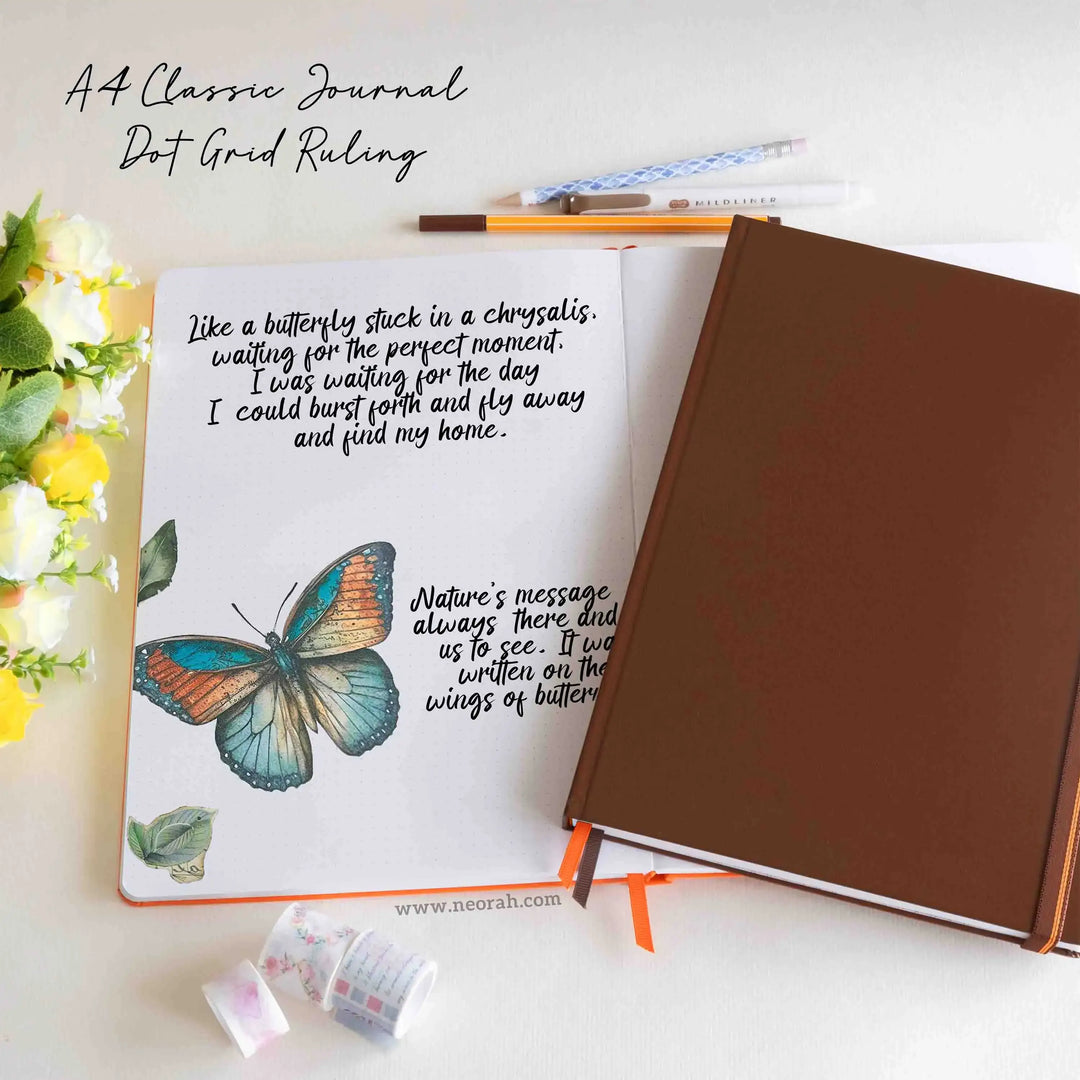 A4 Classic Journal
Dot Grid Ruling
MILDLINER
Like a butterfly stuck in a chrysalis,
waiting for the perfect moment,
I was waiting for the day
I could burst forth and fly away
and find my home.
Nature's message
always there and
us to see. It
written on the
wings of
www.neorah.com